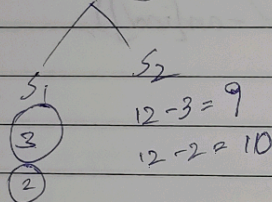 S1 S2
3 12-3=9
2 12-2=10